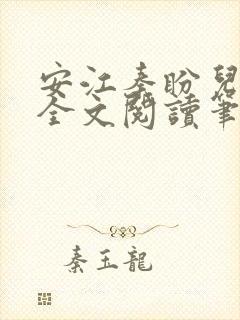 安江秦盼兒
全文閱讀筆
秦玉龍